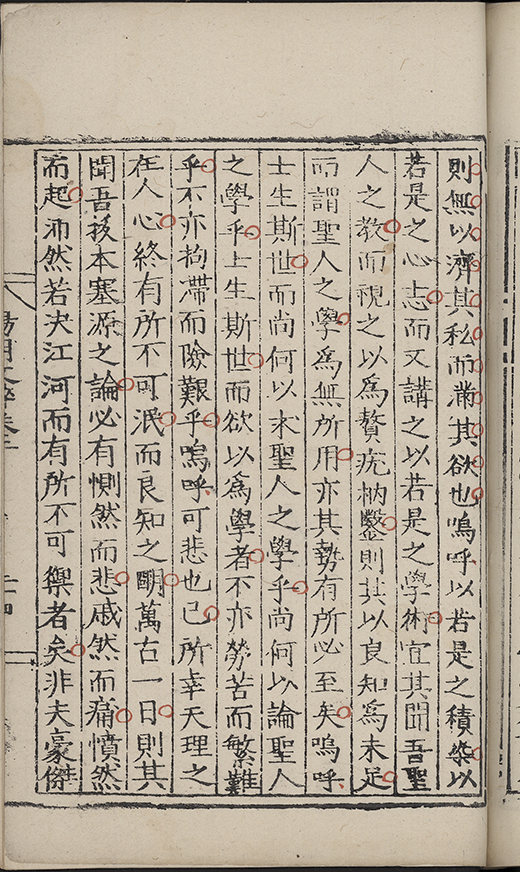 則無以濟其私而滿其欲也嗚呼以若是之積染以
若是之心志而又講之以若是之學術宜其聞吾聖
人之教而視之以爲贅疣枘鑿則其以良知爲未足
而謂聖人之學爲無所用亦其勢有所必至矣嗚呼
士生斯世而尚何以求聖人之學乎尚何以論聖人
之學乎士生斯世而欲以爲學者不亦勞苦而繁難
乎不亦拘滯而險艱乎嗚呼可悲也已所幸天理之
在人心終有所不可泯而良知之明萬古一日則其
聞吾拔本塞源之論必有惻然而悲戚然而痛憤然
而起沛然若决江河而有所不可禦者矣非夫豪傑